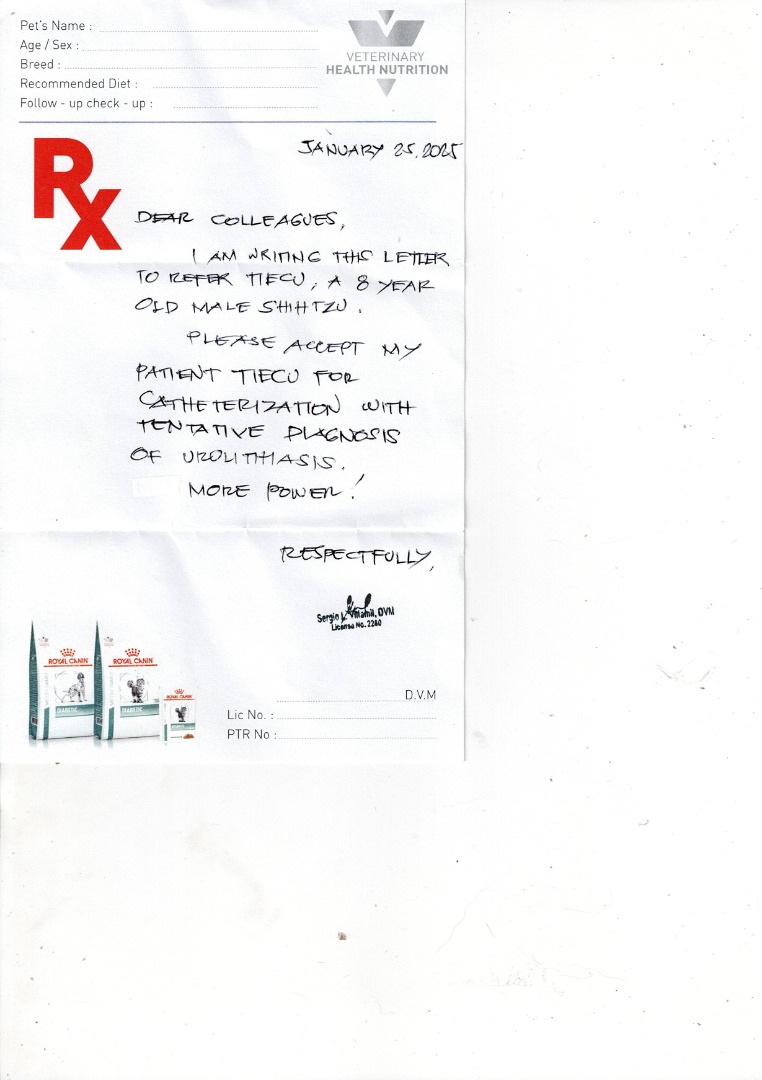 Pet's Name :
Age / Sex :
Breed :
Recommended Diet :
Follow - up check - up :
VETERINARY
HEALTH NUTRITION
Rx
JANUARY 25, 2025
DEAR COLLEAGUES,
I AM WRITING THIS LETTER
TO REFER TIECU, A 8 YEAR
OLD MALE SHIHTZU.
PLEASE ACCEPT MY
PATIENT TIECU FOR
CATHETERIZATION WITH
TENTATIVE DIAGNOSIS
OF UROLITHIASIS.
MORE POWER!
RESPECTFULLY,
Sergio , DVM
License No. 2280
ROYAL CANIN
DIABETIC
ROYAL CANIN
DIABETIC
ROYAL CANIN
D.V.M
Lic No. :
PTR No :